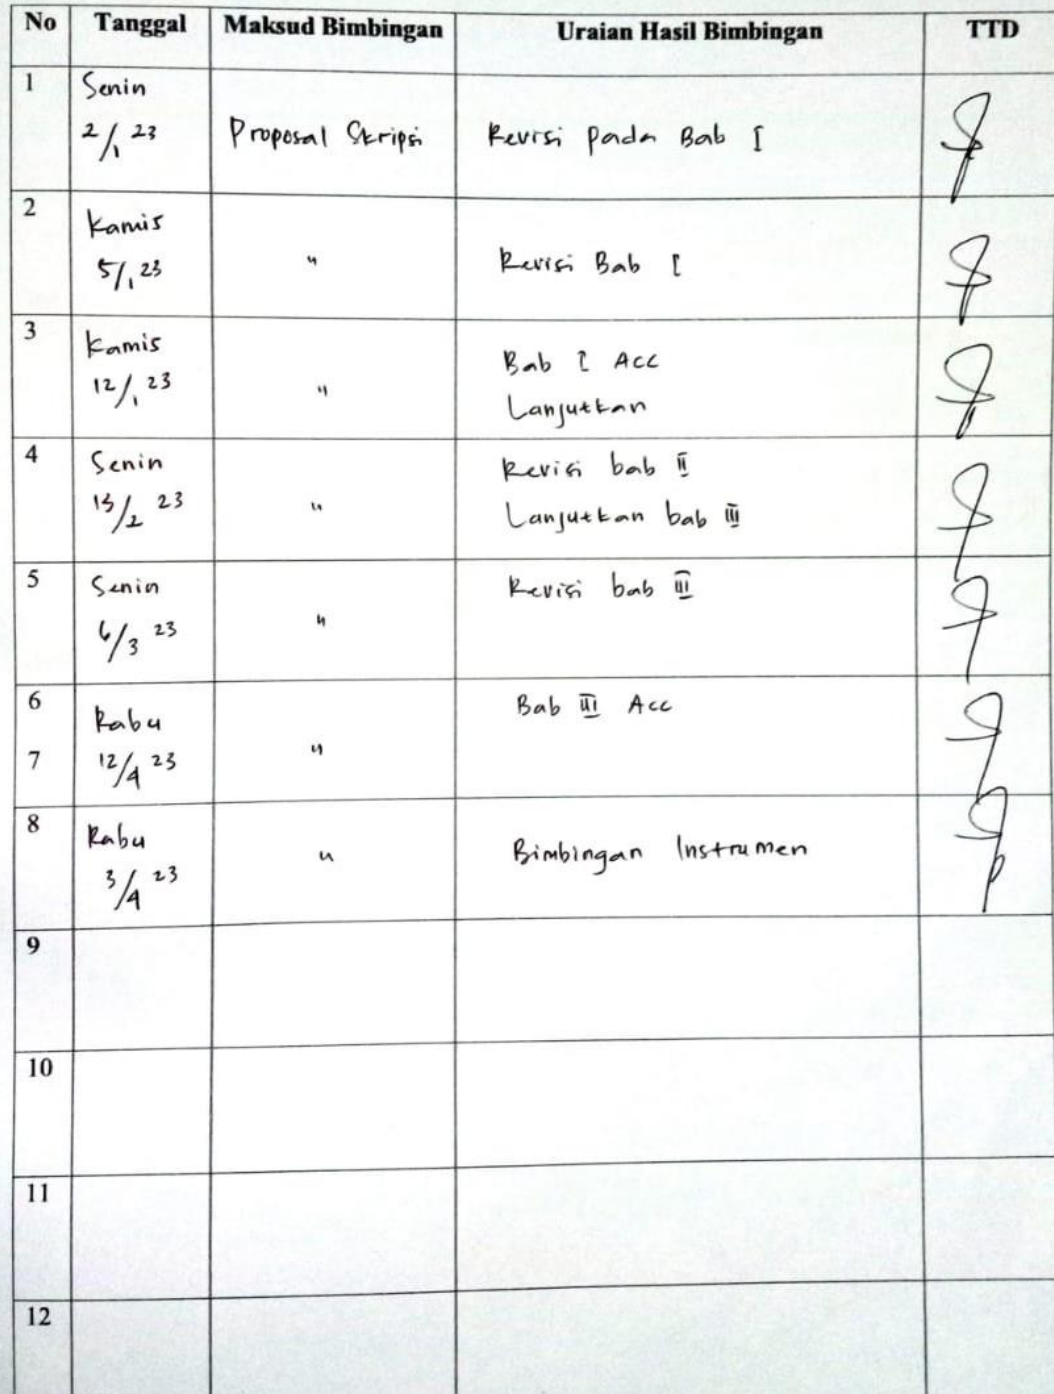 No Tanggal Maksud Bimbingan Uraian Hasil Bimbingan TTD
1 Senin
2/1 23 Proposal Skripsi Revisi pada Bab I
2 Kamis
5/1 23 " Revisi Bab I
3 Kamis Bab I Acc
12/1 23 " Lanjutkan
4 Senin Revisi bab II
13/2 23 " Lanjutkan bab III
5 Senin Revisi bab III
6/3 23 "
6 Rabu Bab III Acc
7 12/4 23 "
8 Rabu
3/4 23 " Bimbingan Instrumen
9
10
11
12